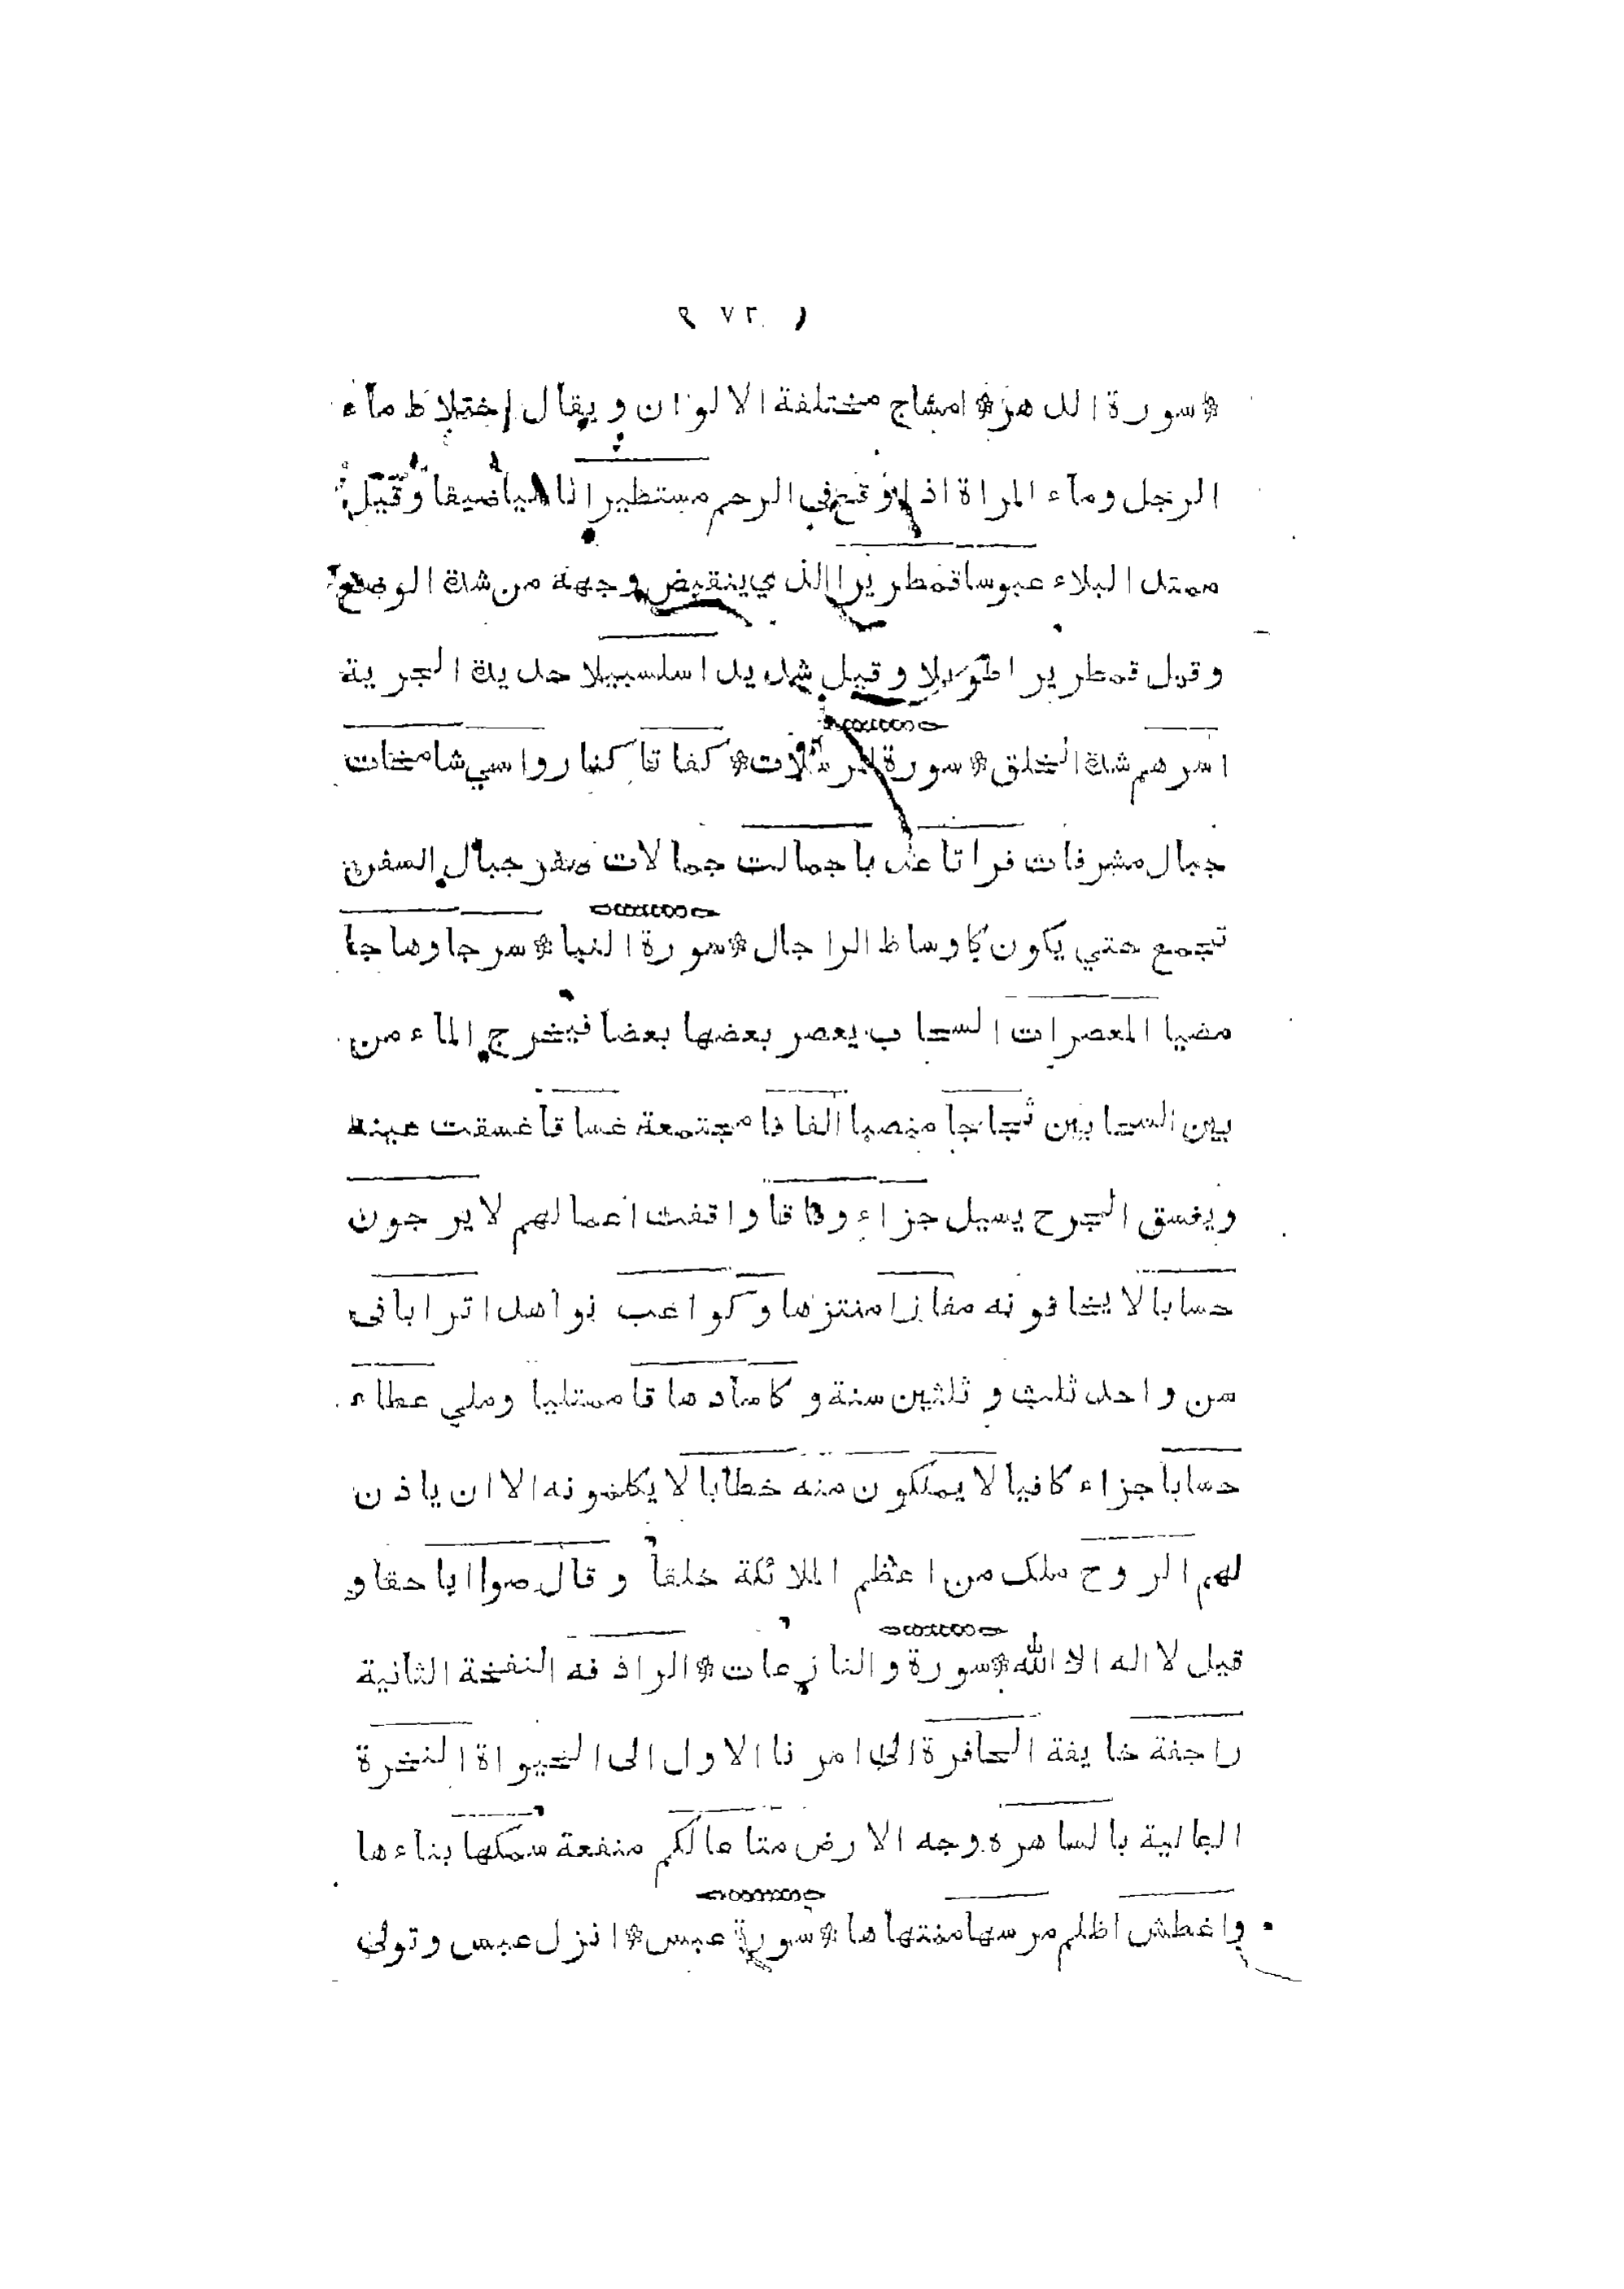 ( ٧٢ )
* سورة الدهر * امشاج مختلفة الالوان ويقال اختلاط مآء
الرجل ومآء المراة اذا وقع في الرحم مستطيرا ضيقا وقيل
ممتد البلاء عبوسا قمطريرا الذي ينقبض وجهة من شدة الوجع
وقيل قمطريرا طويلا وقيل شديدا سلسبيلا حديدة الجرية
اسرهم شدة الخلق * سورة المرسلات * كفاتا كنا رواسي شامخات
جبال مشرفات فراتا عذبا جمالت جمالات صفر جبال السفن
تجمع حتي يكون كاوساط الراجال * سورة النبا * سرجا وهاجا
مضيا المعصرات السحاب يعصر بعضها بعضا فيخرج المآء من
بين السحابين ثجاجا منصبا الفافا مجتمعة غساقا غسقت عينه
ويغسق الجرح يسيل جزاء وفاقا وافقت اعمالهم لا يرجون
حسابا لا يخافونه مفازا منتزها وكواعب نواهد اترابا في
سن واحد ثلث وثلثين سنة وكاسا دهاقا ممتليا وملي عطاء
حسابا جزاء كافيا لا يملكون منه خطابا لا يكلمونه الا ان ياذن
لهم الروح ملك من اعظم الملائكة خلقا وقال صوابا حقا و
قيل لا اله الا الله * سورة والنازعات * الرادفه النفخة الثانية
راجفة خايفة الحافرة الي امرنا الاول الى الحيواة النخرة
البالية بالساهره وجه الارض متاعا لكم منفعة سمكها بناءها
واغطش اظلم مرسها منتهاها * سورة عبس * انزل عبس وتولى